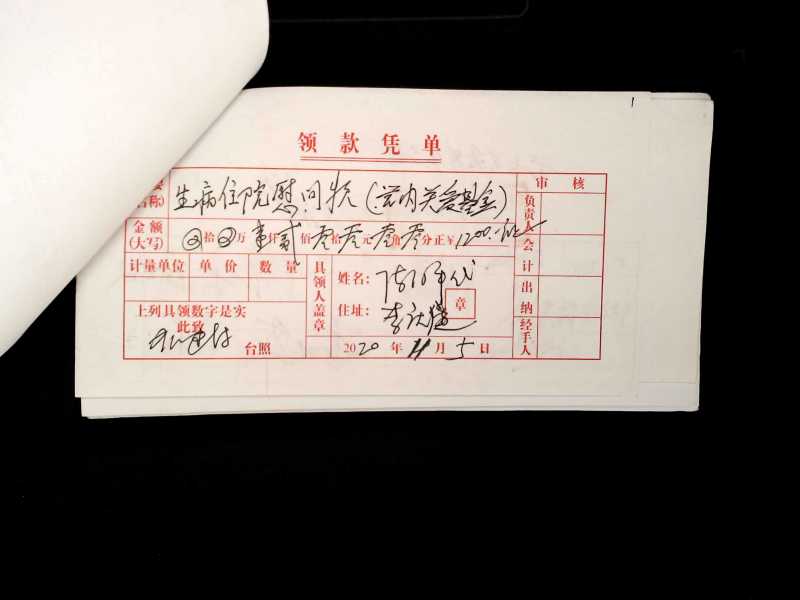 领款凭单
要 审核
名称) 生病住院慰问费(党内关爱基金) 负责人
金额
(大写) 拾 万壹仟贰佰零拾零元零角零分正¥1200.- 会计
计量单位 单价 数量 具领人盖章 姓名: 代
住址: 章 出纳
上列具领数字是实
此致 李庆
台照 2020年11月5日 经手人